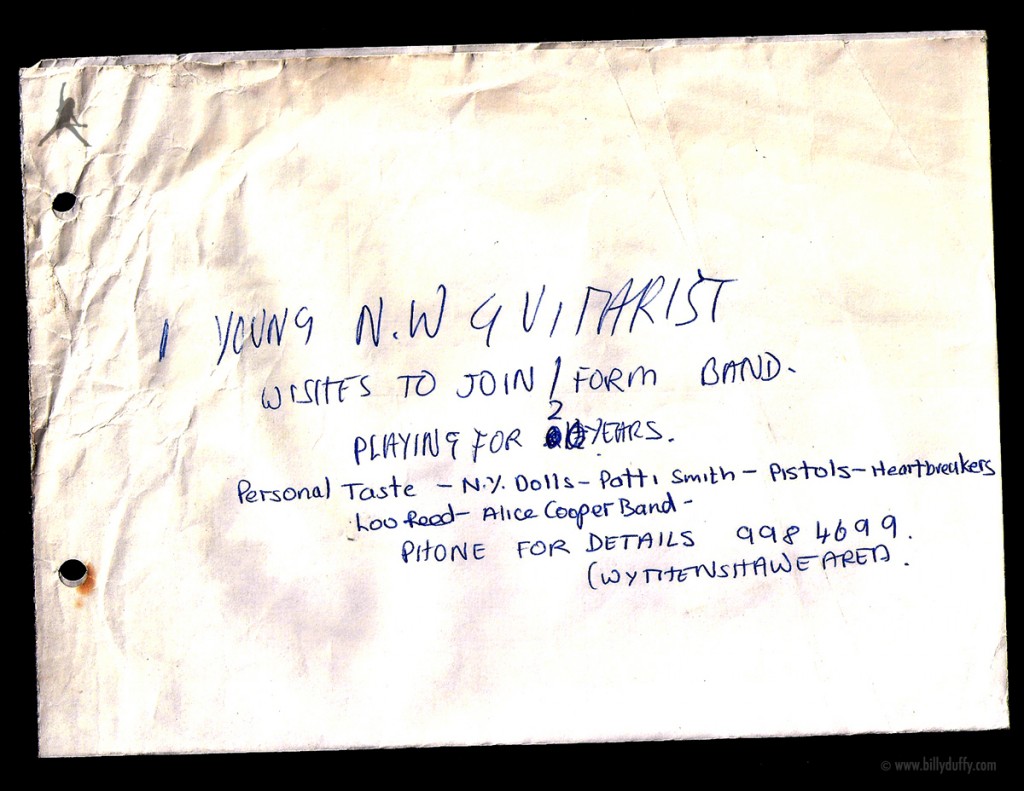 1 YOUNG N.W GUITARIST
WISHES TO JOIN / FORM BAND.
PLAYING FOR 2 YEARS.
Personal Taste - N.Y. Dolls - Patti Smith - Pistols - Heartbreakers
Lou Reed - Alice Cooper Band -
PHONE FOR DETAILS 998 4699.
(WYTHENSHAWE AREA).
© www.billyduffy.com